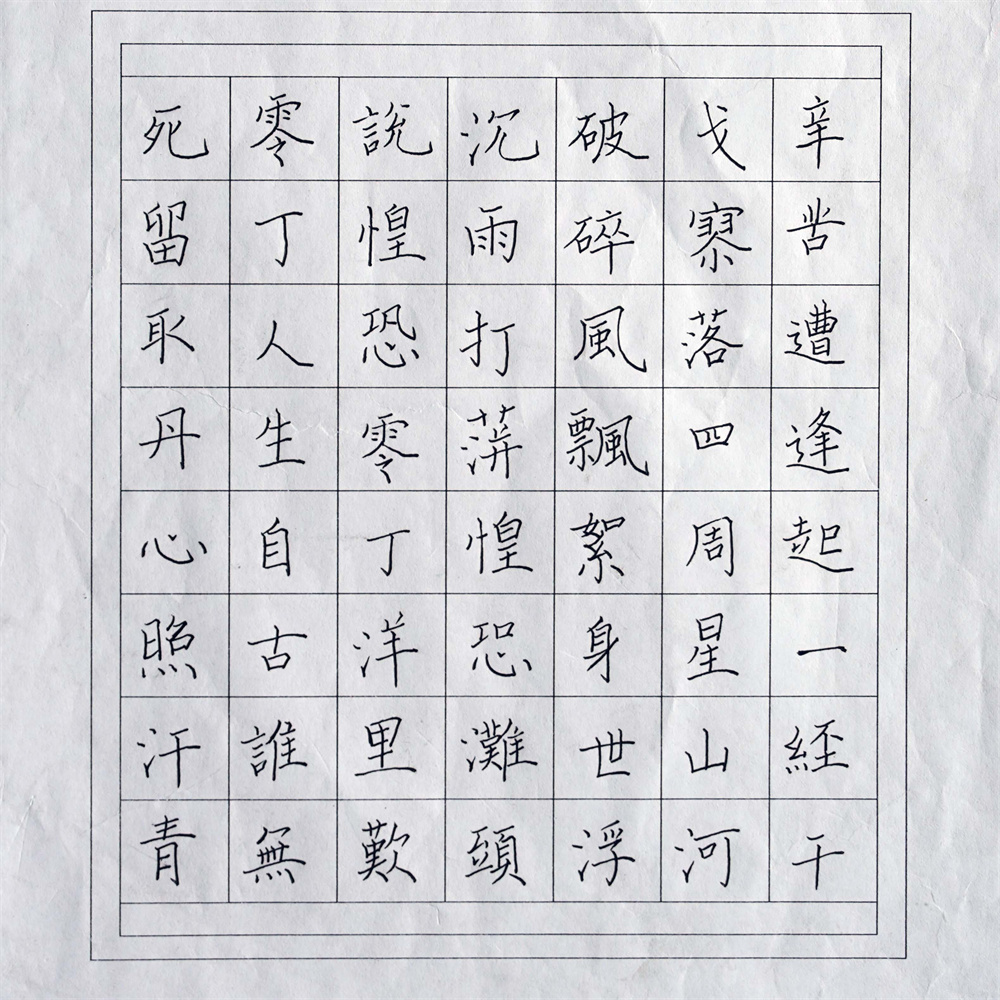 辛苦遭逢起一經干
戈寥落四周星山河
破碎風飄絮身世浮
沉雨打萍惶恐灘頭
說惶恐零丁洋里歎
零丁人生自古誰無
死留取丹心照汗青